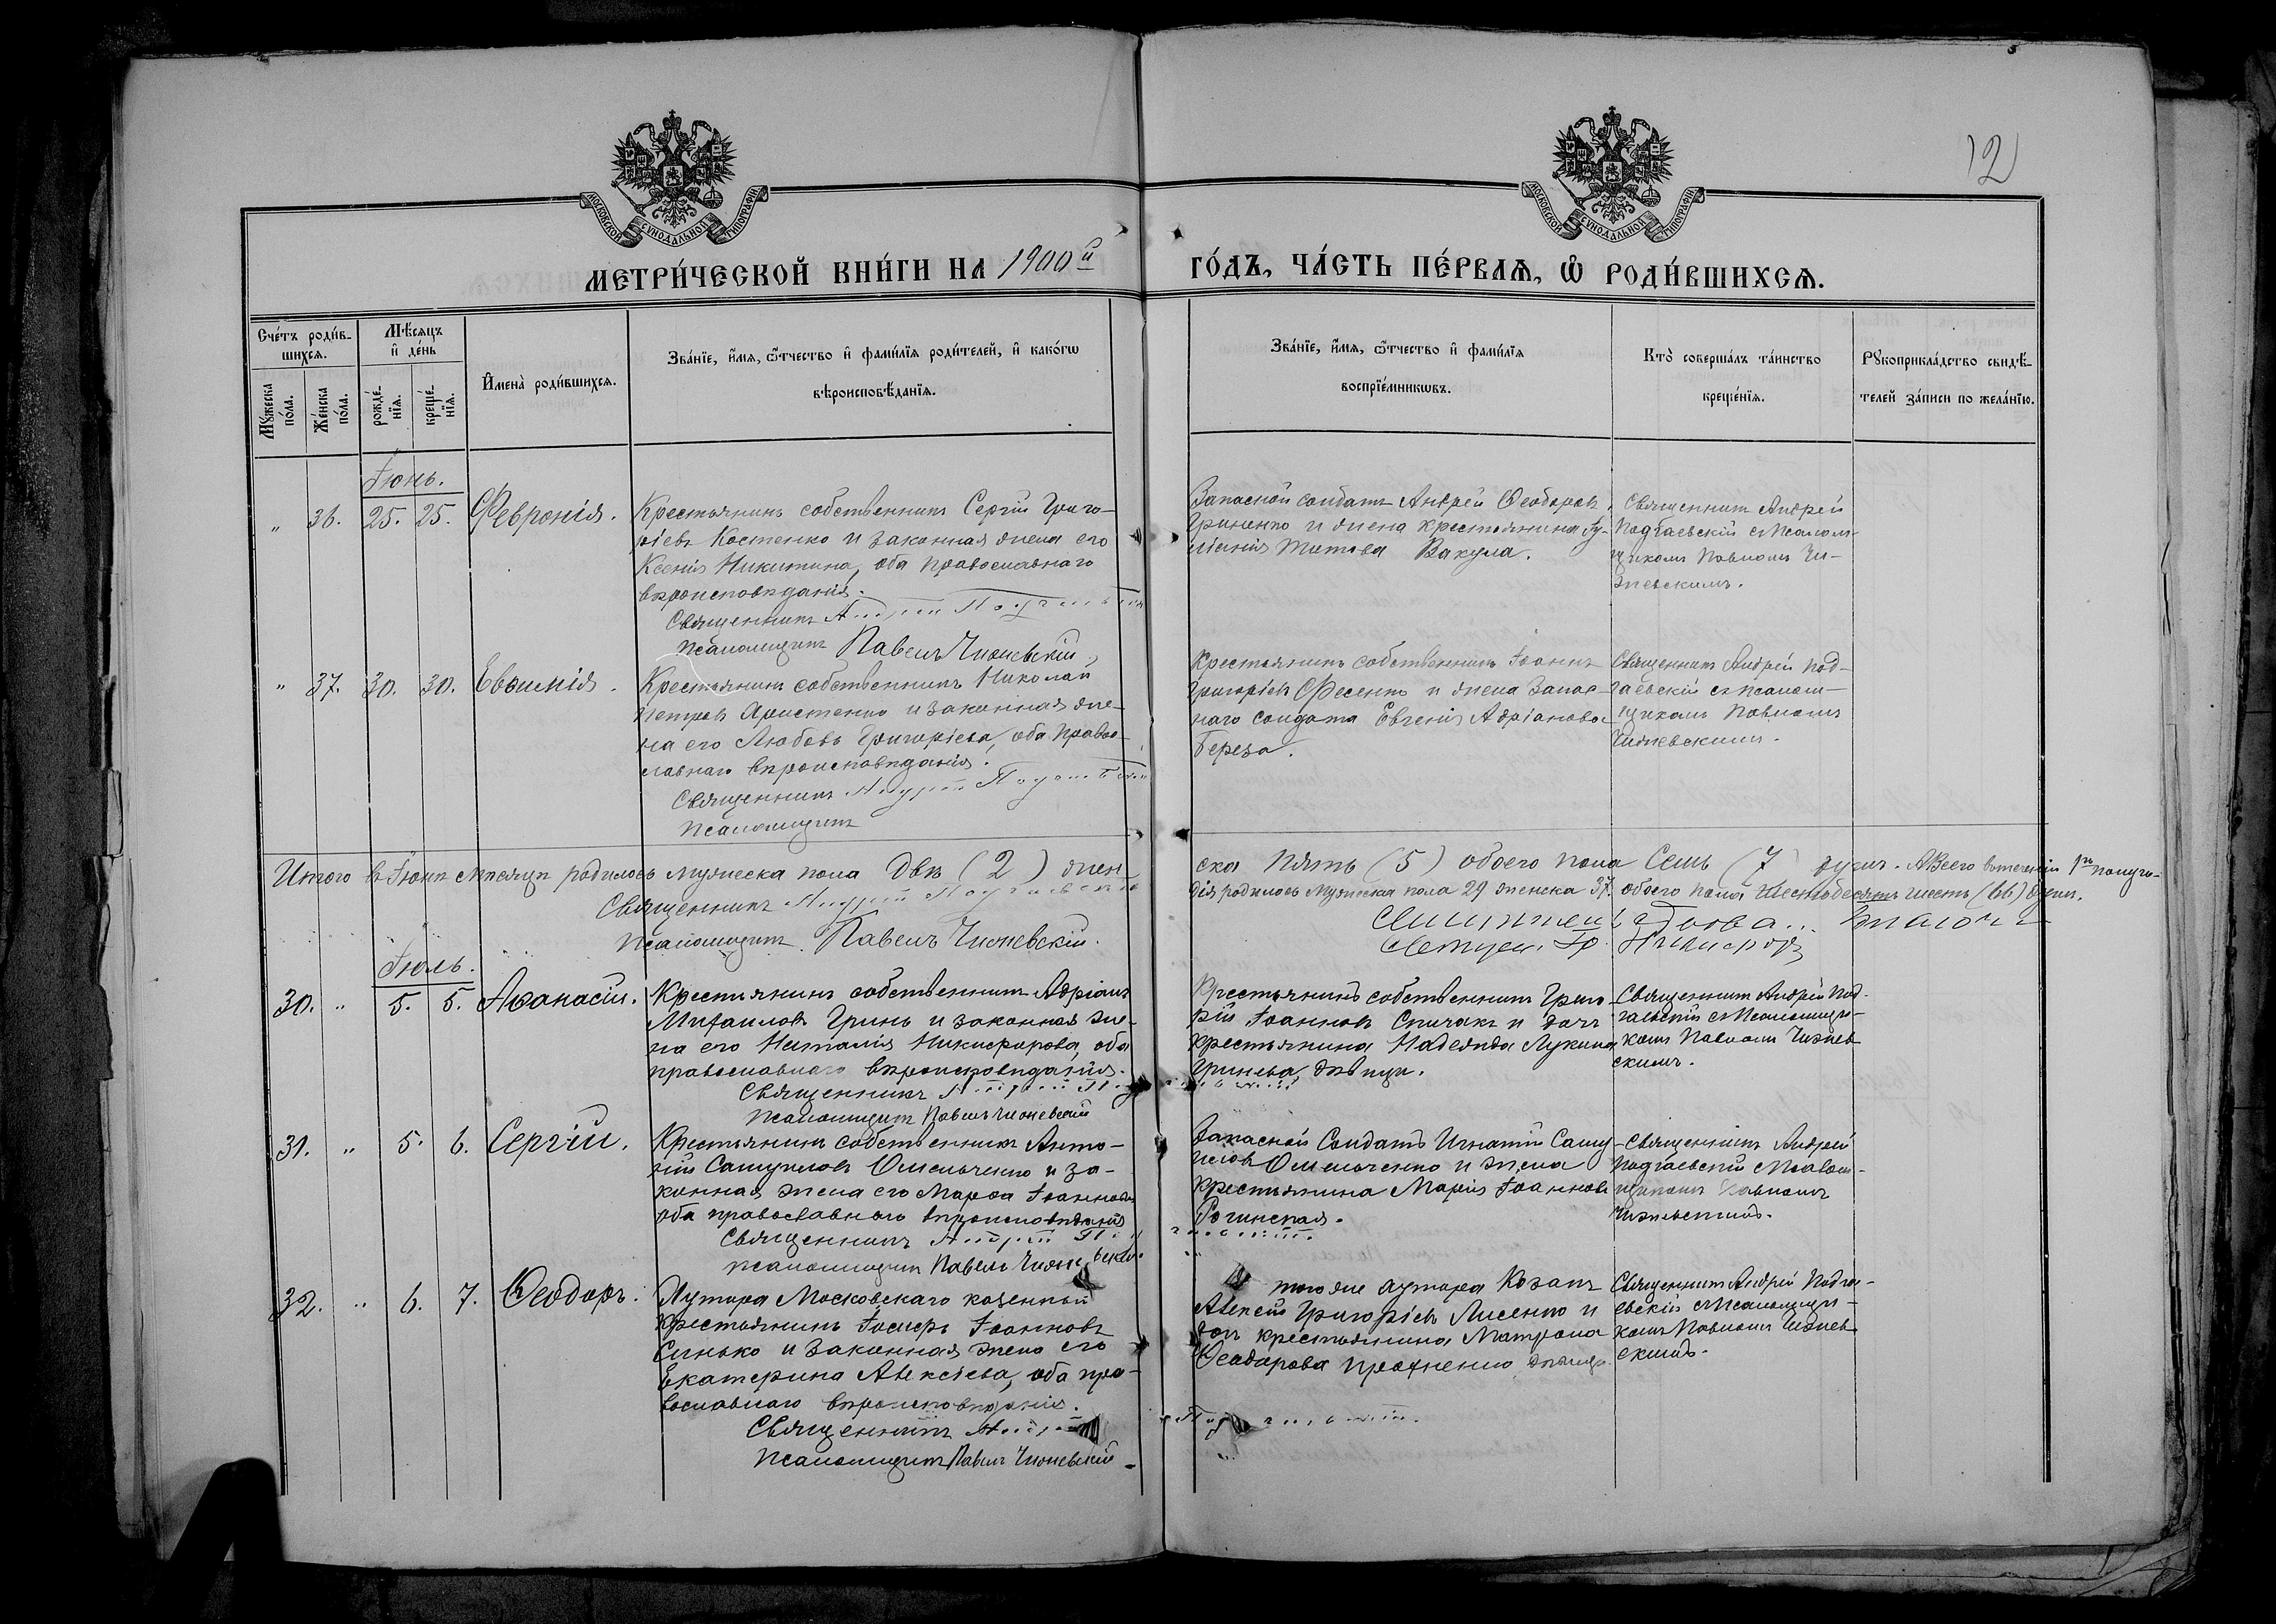 12
МОСКОВСКОЙ СУНОДАЛЬНОЙ ТИПОГРАФІИ
МОСКОВСКОЙ СУНОДАЛЬНОЙ ТИПОГРАФІИ
МЕТРИ́ЧЕСКОЙ КНИ́ГИ НА 1900й
ГО́ДЪ, ЧА́СТЬ ПЕ́РВАѦ, Ѡ҆ РОДИ́ВШИХСѦ.
Сче́тъ роди́в-
шихсѧ.
Мꙋжеска
по́ла.
Же́нска
по́ла.
Мѣ́сѧцъ
и҆ де́нь
рожде́-
нїѧ.
креще́-
нїѧ.
И҆мена̀ роди́вшихсѧ.
Зва́нїе, и҆́мѧ, ѻ҆́тчество и҆ фами́лїѧ роди́телей, и҆ како́гѡ
вѣроисповѣ́данїѧ.
Зва́нїе, и҆́мѧ, ѻ҆́тчество и҆ фами́лїѧ
воспрїе́мникѡвъ.
Кто̀ соверша́лъ та́инство
креще́нїѧ.
Рꙋкоприкла́дство свидѣ́-
телей за́писи по жела́нїю.
Іюнь.
" 36. 25. 25. Февронія.
Крестьянинъ собственникъ Сергій Григо-
ріевъ Костенко и законная жена его
Ксенія Никитина, оба православнаго
вѣроисповѣданія.
Священникъ Андрей
Псаломщикъ Павелъ Чижевскій
Запасной солдатъ Андрей Ѳеодоровъ
Гриненко и жена крестьянина Іу-
ліанія Титова Вакула.
Священникъ Андрей
Подгаевскій съ Псалом-
щикомъ Павломъ Чи-
жевскимъ.
" 37. 30. 30. Евѳимія.
Крестьянинъ собственникъ Николай
Петровъ Христенко и законная же-
на его Любовь Григоріева, оба право-
славнаго вѣроисповѣданія.
Священникъ Андрей
Псаломщикъ
Крестьянинъ собственникъ Іоаннъ
Григоріевъ Фесенко и жена запас-
наго солдата Евгенія Адріанова
Береза.
Священникъ Андрей Под-
гаевскій съ псалом-
щикомъ Павломъ
Чижевскимъ.
Итого в Іюнѣ мѣсяцѣ родилось мужеска пола два (2) жен-
ска пять (5) обоего пола Семь (7) душъ. А Всего в теченіи 1го полуго-
дія родилось мужеска пола 29 женска 37. обоего пола шестьдесятъ шесть (66) душъ.
Священникъ Андрей Подгаевскій
Псаломщикъ Павелъ Чижевскій.
Іюль.
30. " 5. 5. Аѳанасій.
Крестьянинъ собственникъ Адріанъ
Михаиловъ Гринь и законная же-
на его Наталія Никифорова, оба
православнаго вѣроисповѣданія.
Священникъ
Псаломщикъ Павелъ Чижевскій
Крестьянинъ собственникъ Григо-
рій Іоанновъ Спичакъ и дочь
крестьянина Надежда Лукина
Гринева, дѣвица.
Священникъ Андрей Под-
гаевскій съ Псаломщи-
комъ Павломъ Чижев
скимъ.
31. " 5. 6. Сергій.
Крестьянинъ собственникъ Анто-
ній Самуиловъ Омельченко и за-
конная жена его Марѳа Іоаннова
оба православнаго вѣроисповѣданія
Священникъ Андрей
Псаломщикъ Павелъ Чижевскій.
Запасной Солдатъ Игнатій Саму-
иловъ Омельченко и жена
крестьянина Марія Іоаннова
Рогинская.
Священникъ Андрей
Подгаевскій съ Псалом-
щикомъ Павломъ
Чижевскимъ.
32. " 6. 7. Ѳеодоръ.
Хутора Московскаго казенный
крестьянинъ Іосифъ Іоанновъ
Синько и законная жена его
Екатерина Алексіева, оба пра-
вославнаго вѣроисповѣданія.
Священникъ Андрей
Псаломщикъ Павелъ Чижевскій.
того же хутора Козакъ
Алексій Григоріевъ Лисенко и
дочь крестьянина Матрона
Ѳеодорова Прохненко дѣвица.
Священникъ Андрей Подга-
евскій съ Псаломщи-
комъ Павломъ Чижев
скимъ.